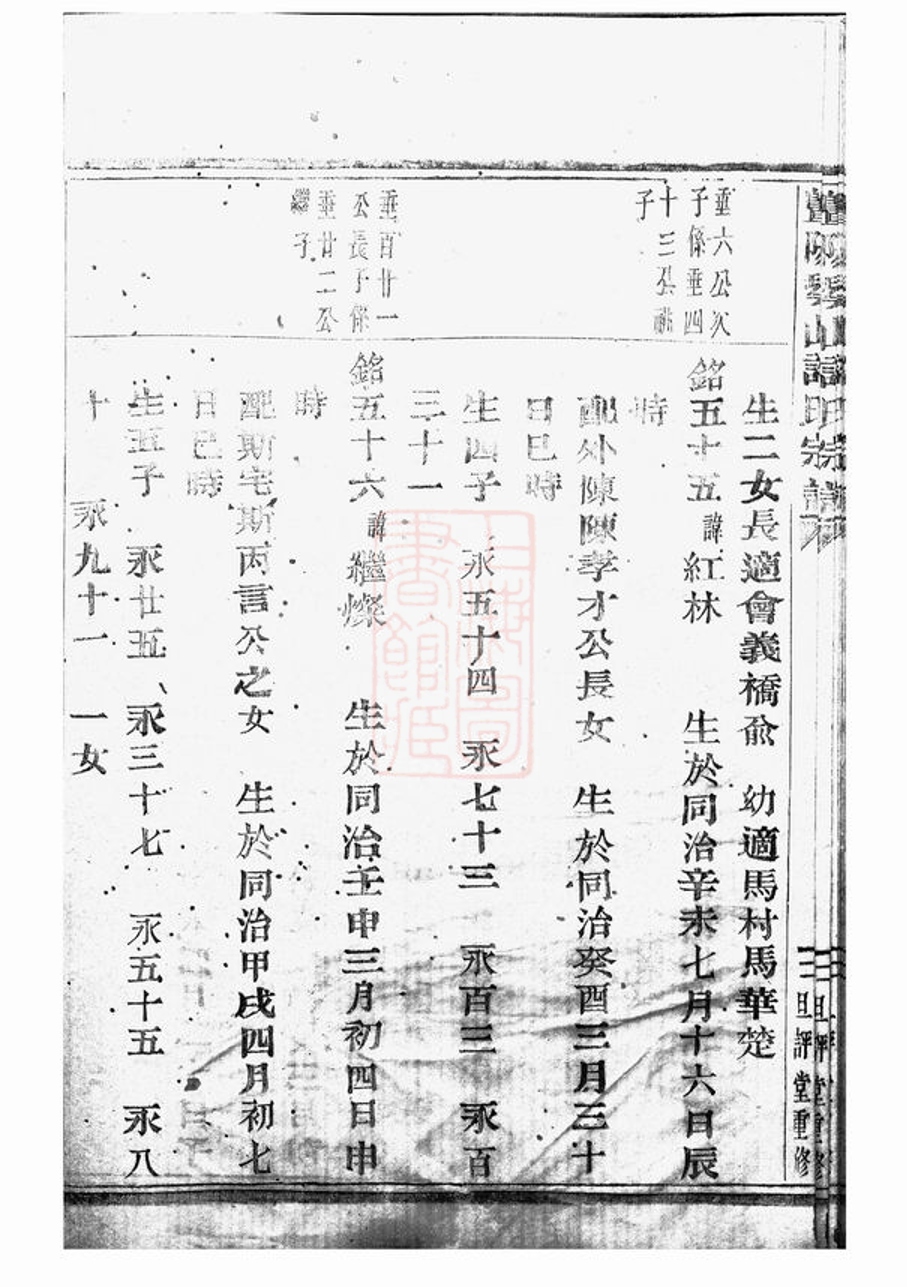 暨陽琴山請明宗譜
生二女長適會義橋俞 幼適馬村馬華楚
垂六公次
子係垂四
十三公祧
子
銘五十五 諱紅林 生於同治辛未七月十六日辰
時
配外陳陳孝才公長女 生於同治癸酉三月三十
日巳時
生四子 永五十四 永七十三 永百三 永百
三十一
垂百廿一
公長子係
垂廿二公
繼子
銘五十六 諱繼燦 生於同治壬申三月初四日申
時
配斯宅斯丙言公之女 生於同治甲戌四月初七
日巳時
生五子 永廿五 永三十七 永五十五 永八
十 永九十一 一女
旦評堂重修